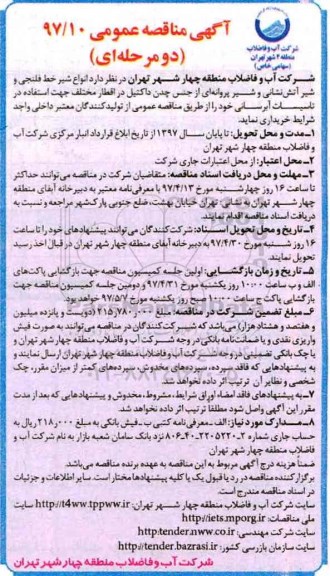 شرکت آب و فاضلاب
منطقه ۴ شهر تهران
(سهامی خاص)
آگهی مناقصه عمومی ۹۷/۱۰
(دو مرحله‌ای)
شرکت آب و فاضلاب منطقه چهار شهر تهران در نظر دارد انواع شیر خط فلنجی و
شیر آتش‌نشانی و شیر پروانه‌ای از جنس چدن داکتیل در اقطار مختلف جهت استفاده در
تاسیسات آبرسانی خود را از طریق مناقصه عمومی از تولیدکنندگان معتبر داخلی واجد
شرایط خریداری نماید.
۱-مدت و محل تحویل: تا پایان سال ۱۳۹۷ از تاریخ ابلاغ قرارداد انبار مرکزی شرکت آب
و فاضلاب منطقه چهار شهر تهران
۲-محل اعتبار: از محل اعتبارات جاری شرکت
۳-مهلت و محل دریافت اسناد مناقصه: متقاضیان شرکت در مناقصه می‌توانند حداکثر
تا ساعت ۱۶ روز چهارشنبه مورخ ۹۷/۴/۱۳ با معرفی‌نامه معتبر به دبیرخانه آبفای منطقه
چهار شهر تهران به نشانی: تهران خیابان بهشت، ضلع جنوبی پارک‌شهر مراجعه و نسبت به
دریافت اسناد مناقصه اقدام نمایند.
۴-تاریخ و محل تحویل اسناد: شرکت‌کنندگان می‌توانند پیشنهادهای خود را تا ساعت
۱۶ روز شنبه مورخ ۹۷/۴/۳۰ به دبیرخانه آبفای منطقه چهار شهر تهران در قبال اخذ رسید
تحویل نمایند.
۵-تاریخ و زمان بازگشایی: اولین جلسه کمیسیون مناقصه جهت بازگشایی پاکت‌های
الف و ب ساعت ۱۰:۰۰ روز یکشنبه مورخ ۹۷/۴/۳۱ و دومین جلسه کمیسیون مناقصه جهت
بازگشایی پاکت ج ساعت ۱۰:۰۰ صبح روز یکشنبه مورخ ۹۷/۵/۷ خواهد بود.
۶-مبلغ تضمین شرکت در مناقصه: مبلغ ۲۱۵/۷۸۰/۰۰۰ (دویست و پانزده میلیون
و هفتصد و هشتاد هزار) می‌باشد که شرکت‌کنندگان در مناقصه می‌توانند به صورت فیش
واریزی نقدی و یا ضمانت‌نامه بانکی در وجه شرکت آب و فاضلاب منطقه چهار شهر تهران
یا چک بانکی تضمین در وجه شرکت آب و فاضلاب منطقه چهار شهر تهران ارسال نمایند و
به پیشنهادهایی که فاقد سپرده، سپرده‌های مخدوش، سپرده‌های کمتر از میزان مقرر، چک
شخصی و نظایر آن ترتیب اثر داده نخواهد شد.
۷-به پیشنهادهای فاقد امضاء اوراق شرایط، مشروط، مخدوش و پیشنهادهایی که بعد از مدت
مقرر این آگهی واصل شود مطلقا ترتیب اثر داده نخواهد شد.
۸-مدارک مورد نیاز: الف-معرفی‌نامه کتبی ب-فیش بانکی به مبلغ ۲۱۸/۰۰۰ ریال به
حساب جاری شماره ۲-۲۲۰۵۲۲۰-۴۰-۸۰۶ نزد بانک سامان شعبه بازار به نام شرکت آب و
فاضلاب منطقه چهار شهر تهران
ضمنا هزینه درج آگهی مربوط به این مناقصه به عهده برنده مناقصه می‌باشد.
برگزارکننده مناقصه در رد یا قبول یک یا کلیه پیشنهادها مختار است. سایر اطلاعات و جزئیات
در اسناد مناقصه مندرج است.
سایت شرکت آب و فاضلاب منطقه چهار شهر تهران: http://t4ww.tppww.ir سایت
ملی مناقصات: http://iets.mporg.ir
سایت شرکت مهندسی: http:tender.nww.co.ir
سایت سازمان بازرسی کشور: http://tender.bazrasi.ir
شرکت آب و فاضلاب منطقه چهار شهر تهران